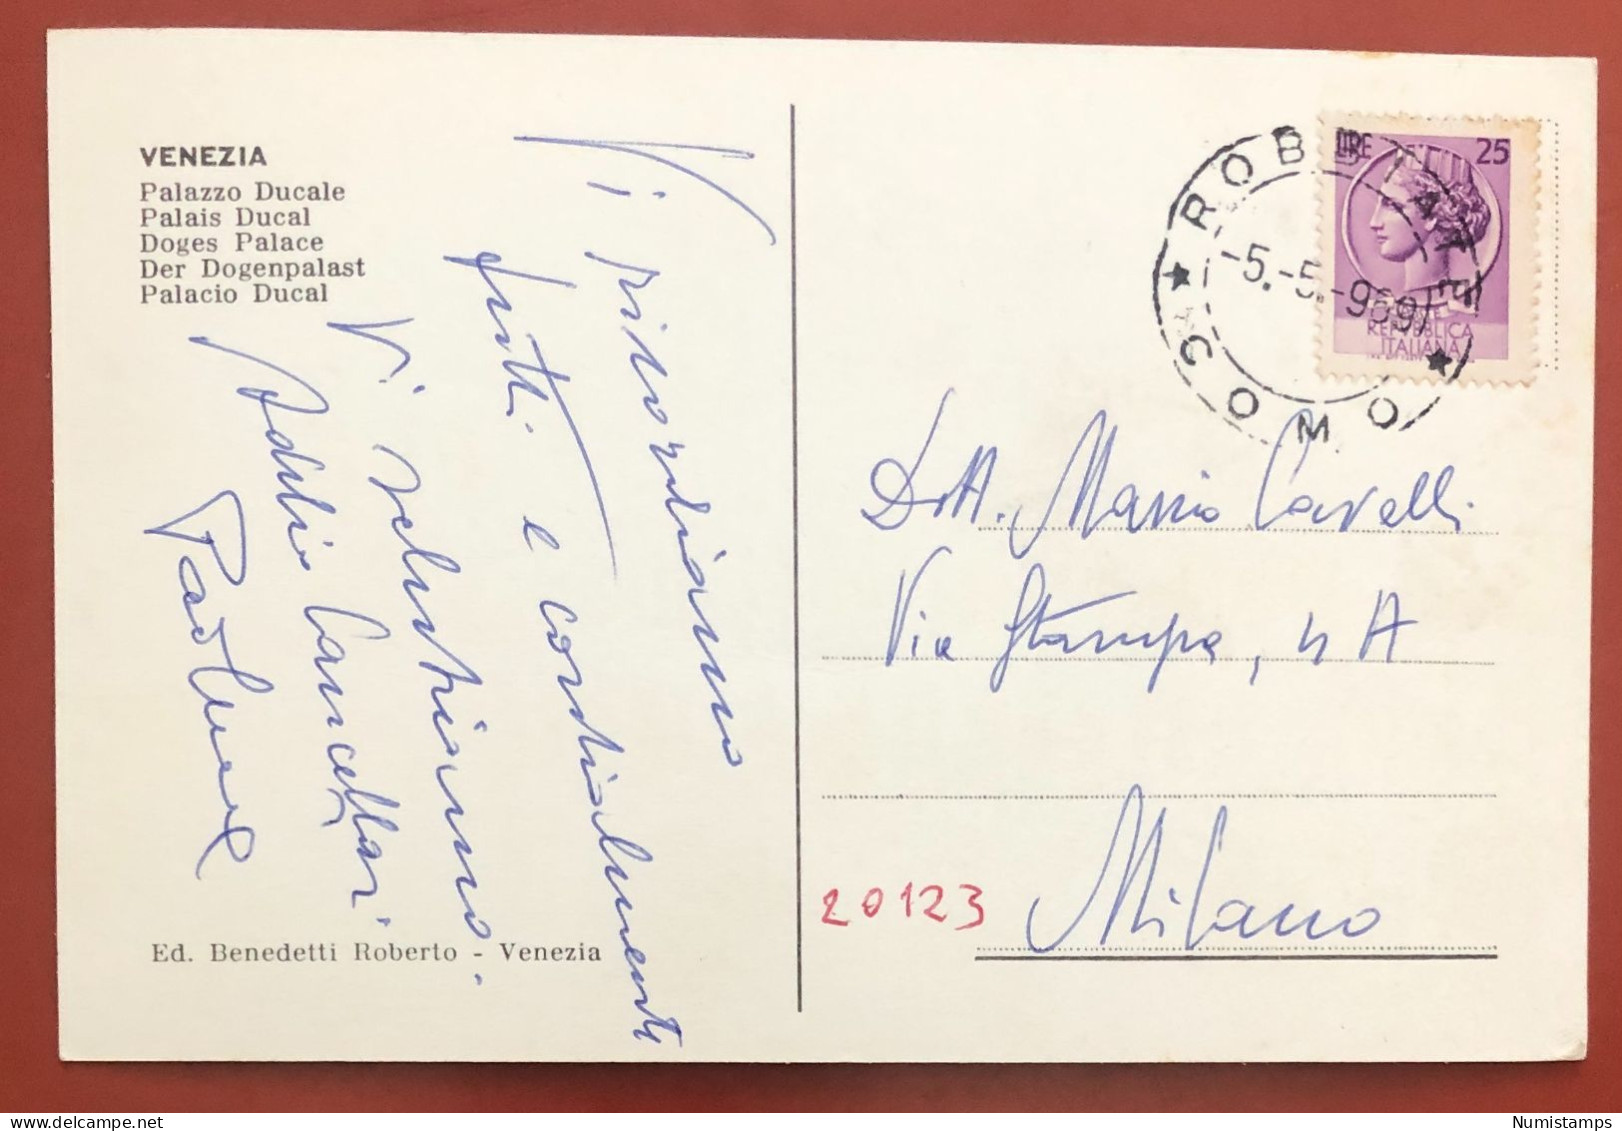 VENEZIA
Palazzo Ducale
Palais Ducal
Doges Palace
Der Dogenpalast
Palacio Ducal
Vi ricordiamo
tutti e cordialmente
Vi salutiamo.
Adelio Cancellari
Ed. Benedetti Roberto - Venezia
LIRE 25
REPUBBLICA
ITALIANA
ROBBIATE
-5.-5.-969
COMO
Dott. Mario Cavelli
Via Stampa, 4 A
20123
Milano
Numistamps